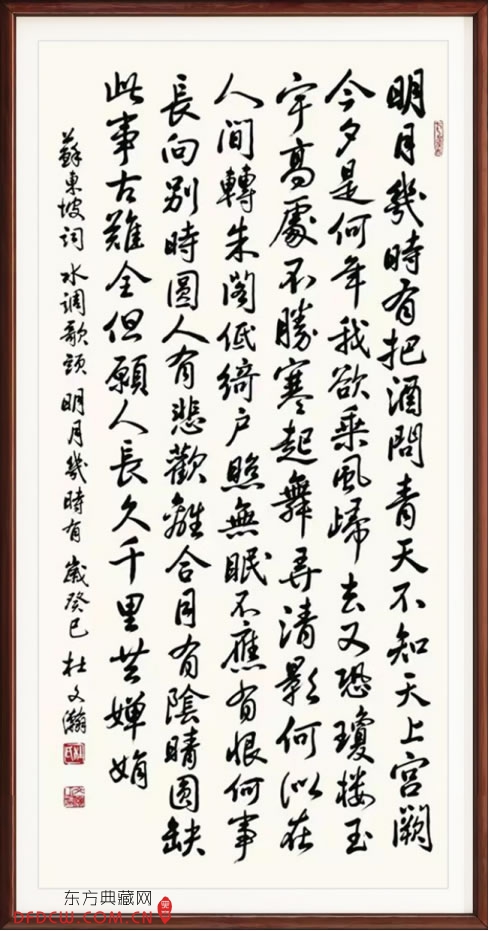 明月幾時有把酒問青天不知天上宮闕
今夕是何年我欲乘風歸去又恐瓊樓玉
宇高處不勝寒起舞弄清影何似在
人間轉朱閣低綺户照無眠不應有恨何事
長向別時圓人有悲歡離合月有陰晴圓缺
此事古難全但願人長久千里共嬋娟
蘇東坡詞 水调歌頭 明月幾時有 歲癸巳 杜文瀚
东方典藏网
DFDCW.COM.CN